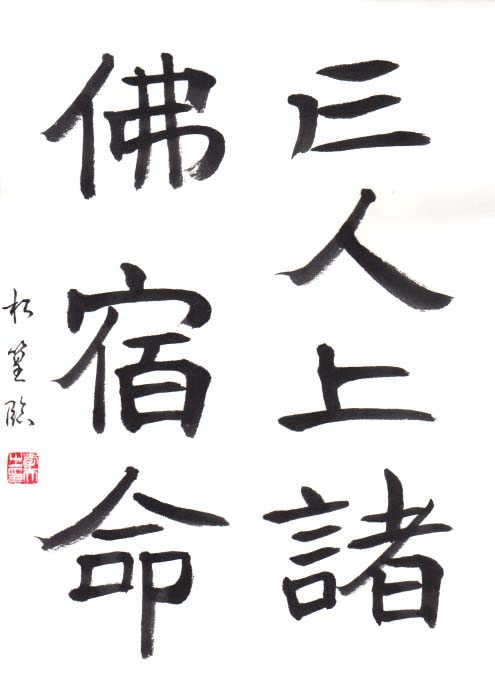 亡人上諸
佛宿命
松篁臨